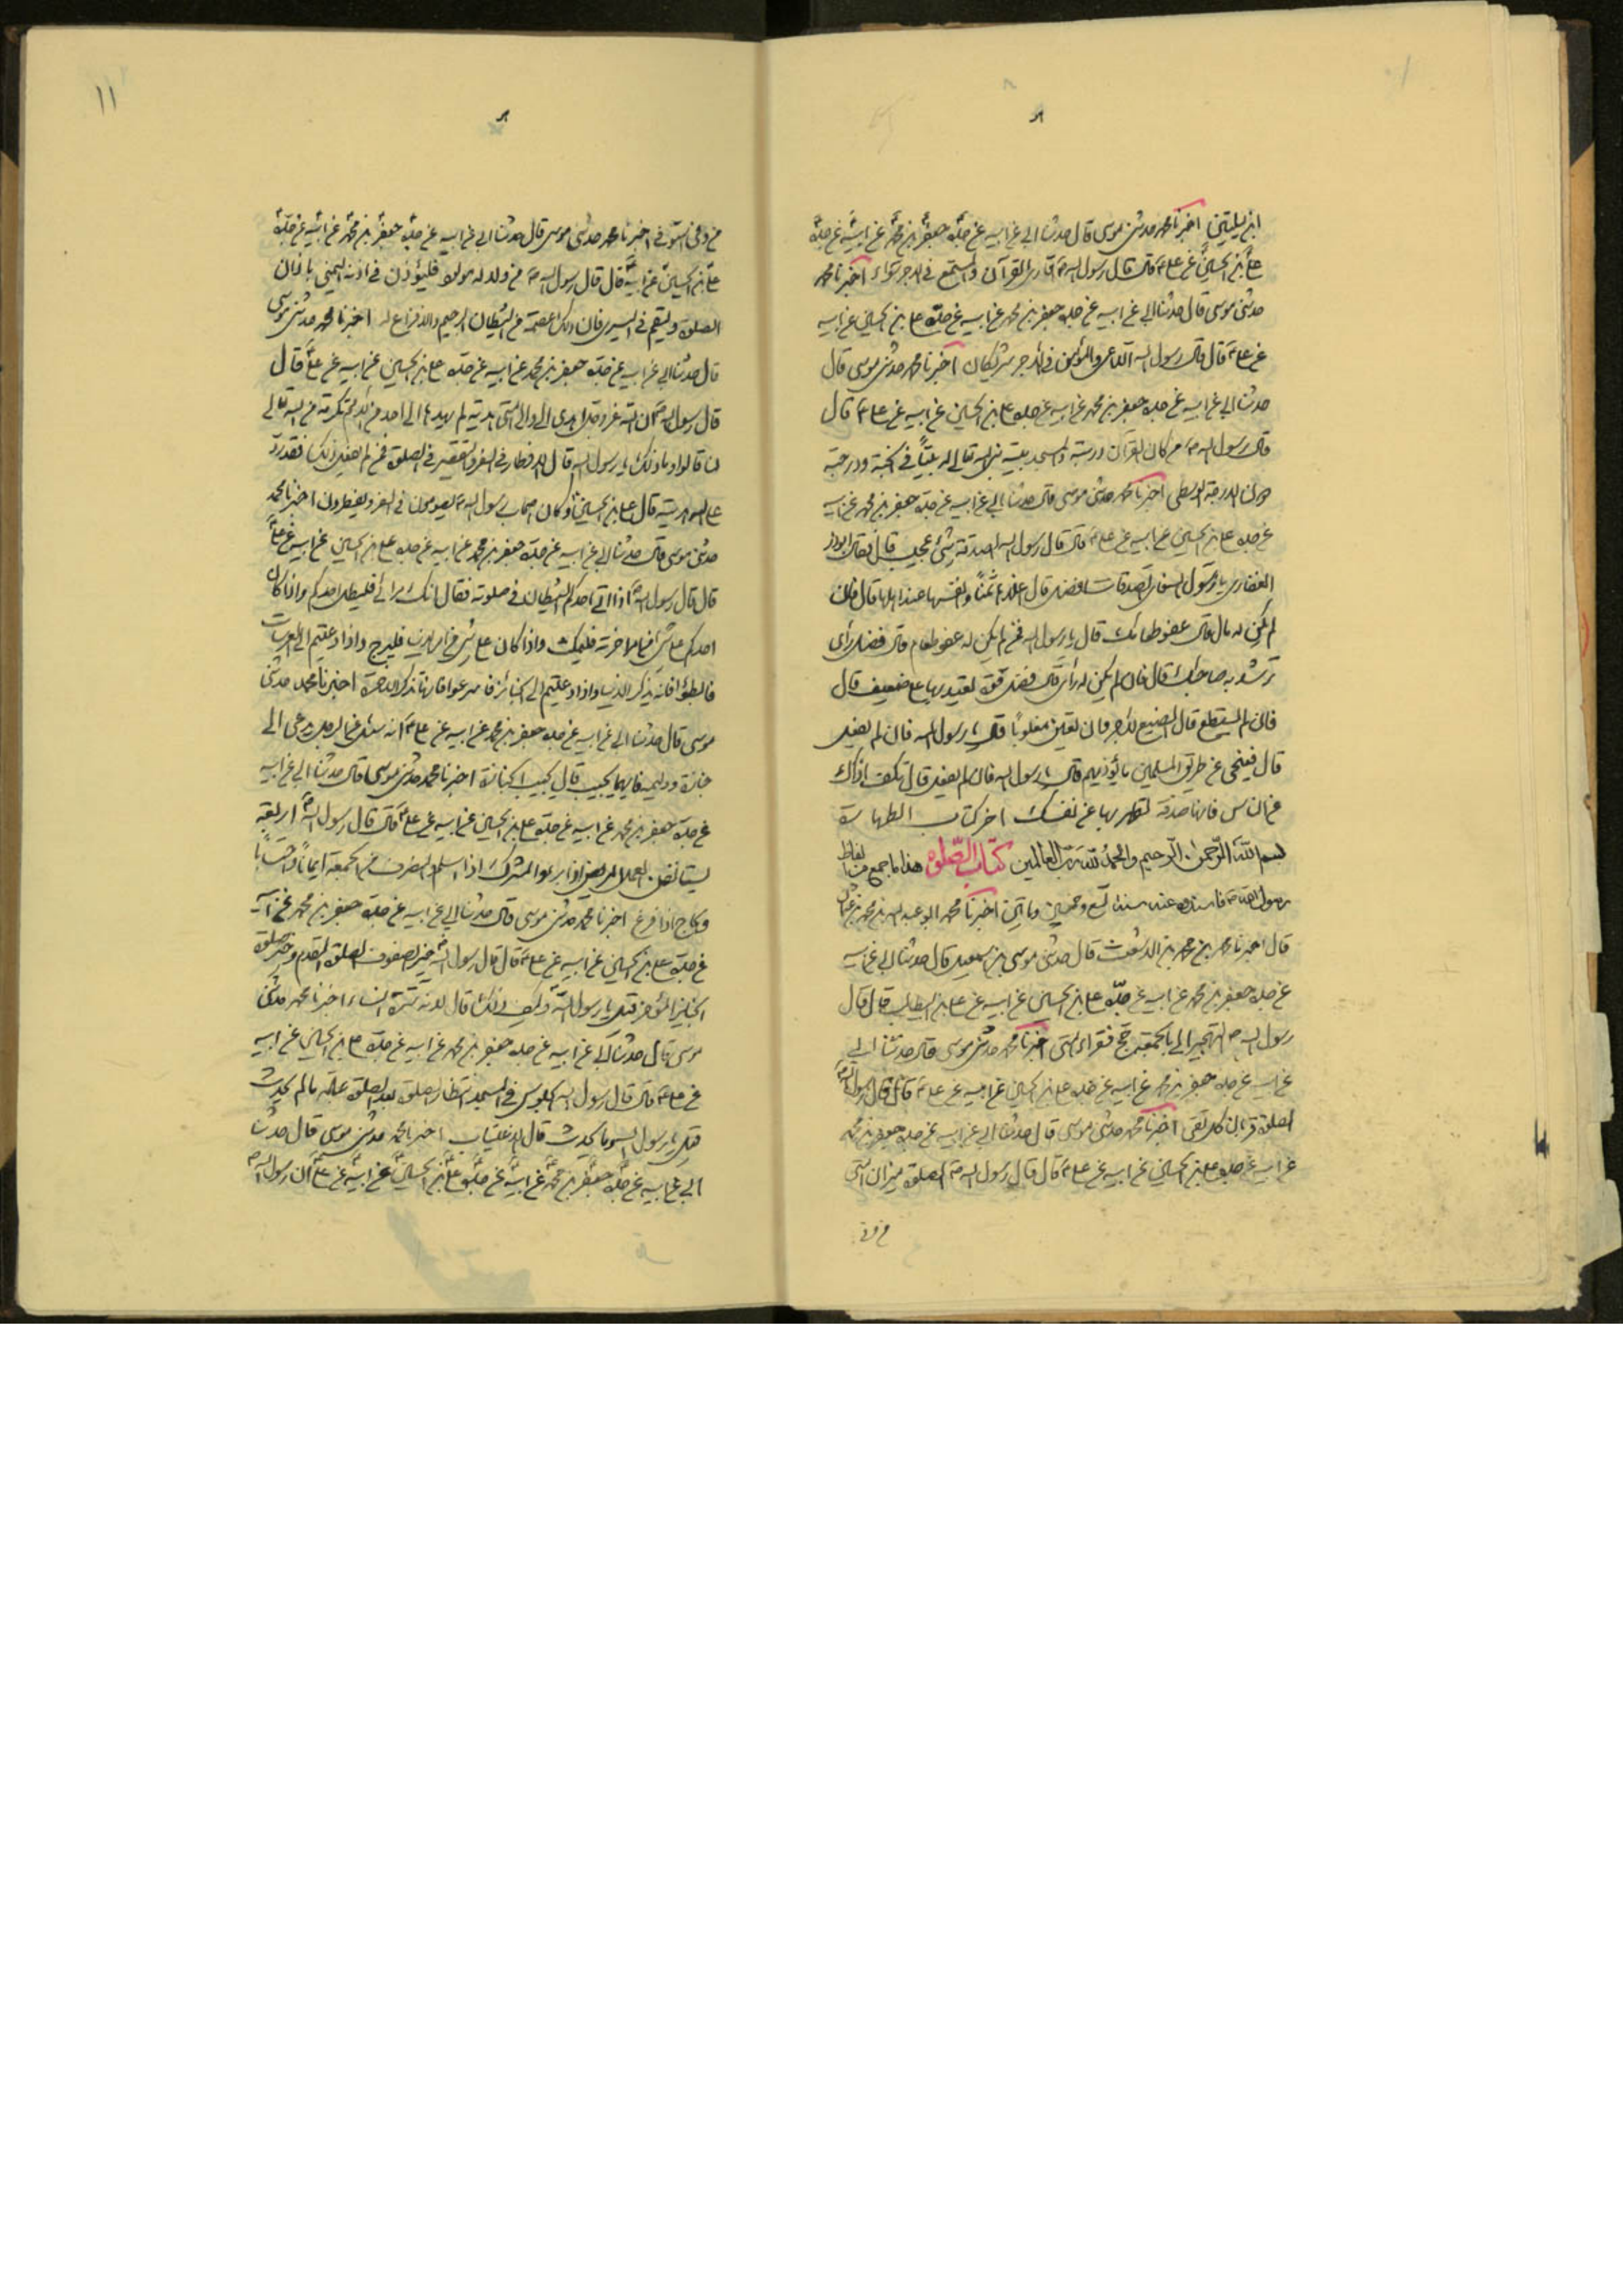 اخبرنا محمد حدثنى موسى قال حدثنا ابى عن ابيه عن جده جعفر بن محمد عن ابيه عن جده
على بن الحسين عن على قال قال رسول الله ص قارى القرآن والمستمع فى الاجر سواء اخبرنا محمد
حدثنى موسى قال حدثنا ابى عن ابيه عن جده جعفر بن محمد عن ابيه عن جده على بن الحسين عن ابيه
عن على ع قال قال رسول الله الداعى والمؤمن فى الاجر شريكان اخبرنا محمد حدثنى موسى قال
حدثنا ابى عن ابيه عن جده جعفر بن محمد عن ابيه عن جده على بن الحسين عن ابيه عن على ع قال
قال رسول الله ص من كان القرآن دربته والمسجد بيته بنى الله تعالى له بيتاً فى الجنة ودرجة
دون الدرجة الوسطى اخبرنا محمد حدثنى موسى قال حدثنا ابى عن ابيه عن جده جعفر بن محمد عن ابيه
عن جده على بن الحسين عن ابيه عن على ع قال قال رسول الله الصدقة شئ عجيب قال فقال ابوذر
الغفارى يا رسول الله فاى الصدقات افضل قال اغلاها ثمناً وانفسها عند اهلها قال فان
لم يكن له مال قال عفو طعامك قال يا رسول الله فمن لم يكن له عفو طعام قال فضل رأى
ترشد به صاحبك قال فان لم يكن له رأى قال فضل قوة تعين بها على ضعيف قال
فان لم يستطع قال الصنيع لاخر وان تعين مغلوباً قال يا رسول الله فان لم يفعل
قال فينحى عن طريق المسلمين ما يؤذيهم قال يا رسول الله فان لم يفعل قال تكف اذاك
عن الناس فانها صدقة تطهر بها عن نفسك اخر كتاب الطهارة
بسم الله الرحمن الرحيم والحمد لله رب العالمين كتاب الصلوة هذا ما جمع من الفاظ
رسول الله ص
قال اخبرنا محمد بن محمد بن الاشعث قال حدثنى موسى بن اسمعيل قال حدثنا ابى عن ابيه
عن جده جعفر بن محمد عن ابيه عن جده على بن الحسين عن ابيه عن على بن ابيطالب قال قال
رسول الله ص التهجير الى الجمعة حج فقراء امتى اخبرنا محمد حدثنى موسى قال حدثنا ابى
عن ابيه عن جده جعفر بن محمد عن ابيه عن جده على بن الحسين عن ابيه عن على ع قال قال رسول الله ص
الصلوة قربان كل تقى اخبرنا محمد حدثنى موسى قال حدثنا ابى عن ابيه عن جده جعفر بن محمد
عن ابيه عن جده على بن الحسين عن ابيه عن على ع قال قال رسول الله ص الصلوة ميزان امتى
من وفى
١١
من وفى استوفى اخبرنا محمد حدثنى موسى قال حدثنا ابى عن ابيه عن جده جعفر بن محمد عن ابيه عن جده
على بن الحسين عن ابيه قال قال رسول الله ص من ولد له مولود فليؤذن فى اذنه اليمنى باذان
الصلوة وليقم فى اليسرى فان ذلك عصمة من الشيطان الرجيم والافزاع له اخبرنا محمد حدثنى موسى
قال حدثنا ابى عن ابيه عن جده جعفر بن محمد عن ابيه عن جده على بن الحسين عن ابيه عن على قال
قال رسول الله ص ان الله عز وجل اهدى الى والى امتى هدية لم يهدها الى احد من الامم تكرمة من الله تعالى
لنا قالوا وما ذلك يا رسول الله قال الافطار فى السفر والتقصير فى الصلوة فمن لم يفعل ذلك فقد رد
على الله هديته قال على بن الحسين وكان اصحاب رسول الله ص يصومون فى السفر ويفطرون اخبرنا محمد
حدثنى موسى قال حدثنا ابى عن ابيه عن جده جعفر بن محمد عن ابيه عن جده على بن الحسين عن ابيه عن على
قال قال رسول الله اذا اتى احدكم الشيطان فى صلوته فقال انك مرائى فليطل احدكم واذا كان
احدكم على شئ من امر اخرته فليمكث واذا كان على شئ من امر الدنيا فليبرح واذا دعيتم الى العرسات
فابطؤا فانه يذكر الدنيا واذا دعيتم الى الجنائز فاسرعوا فانها تذكر الاخرة اخبرنا محمد حدثنى
موسى قال حدثنا ابى عن ابيه عن جده جعفر بن محمد عن ابيه عن على ع انه سئل عن الرجل يدعى الى
جنازة ووليمة فايهما يجيب قال يجيب الجنازة اخبرنا محمد حدثنى موسى قال حدثنا ابى عن ابيه
عن جده جعفر بن محمد عن ابيه عن جده على بن الحسين عن ابيه عن على قال قال رسول الله ص اربعة
يستأنفون العمل المريض اذا برئ والمشرك اذا اسلم والمنصرف من الجمعة ايماناً واحتساباً
والحاج اذا فرغ اخبرنا محمد حدثنى موسى قال حدثنا ابى عن ابيه عن جده جعفر بن محمد عن ابيه
عن جده على بن الحسين عن ابيه عن على ع قال قال رسول الله خير الصفوف الصلوة المقدم وخير صلوة
الجنايز المؤخر قيل يا رسول الله وكيف ذلك قال لانه سترة النساء اخبرنا محمد حدثنى
موسى قال حدثنا ابى عن ابيه عن جده جعفر بن محمد عن ابيه عن جده على بن الحسين عن ابيه
عن على ع قال قال رسول الله الجلوس فى المسجد انتظار الصلوة بعد الصلوة عبادة ما لم يحدث
قيل يا رسول الله وما يحدث قال الاغتياب اخبرنا محمد حدثنى موسى قال حدثنا
ابى عن ابيه عن جده جعفر بن محمد عن ابيه عن جده على بن الحسين عن ابيه عن على ان رسول الله ص